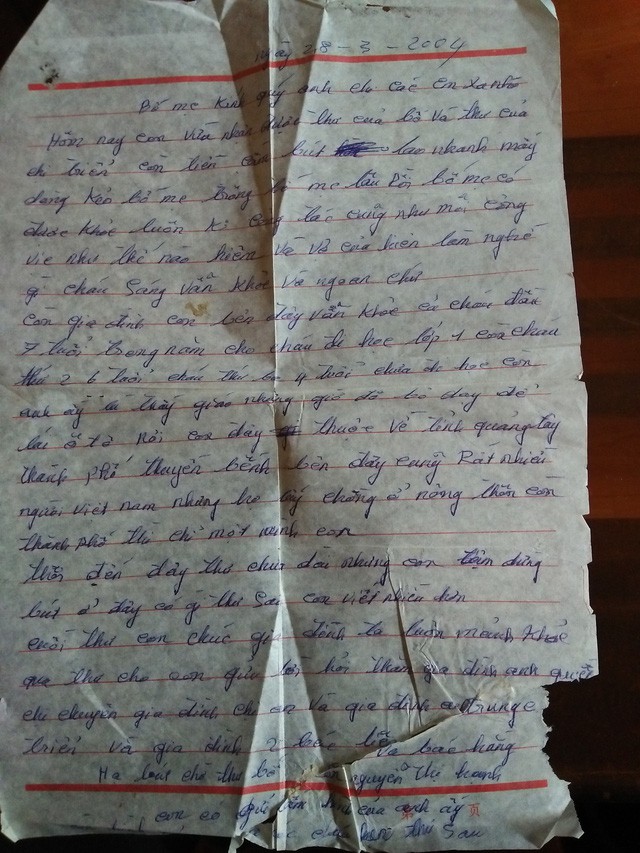 Ngày 28-3-2004
Bố mẹ kính quý anh chị các em xa nhớ
Hôm nay con vừa nhận được thư của bố và thư của
chị triển con liền cầm bút lao nhanh mấy
dòng
được khỏe luôn không công tác cũng như mọi công
việc như thế nào hiêm và vợ của hiên làm nghề
gì cháu Sáng vẫn khỏe và ngoan chứ
còn gia đình con bên đây vẫn khỏe cả cháu đầu
7 tuổi trong năm cho cháu đi học lớp 1 con cháu
thứ 2 6 tuổi cháu thứ ba 4 tuổi chưa đi học còn
anh ấy là thầy giáo nhưng giờ đã bỏ dạy để
lái ô tô nơi con đây thuộc về tỉnh quảng tây
thành phố bên đây cũng Rất nhiều
người việt nam nhưng họ lấy chồng ở nông thôn còn
thành phố thì chỉ một mình con
thôi đến đây thư chưa dài nhưng con tạm dừng
bút ở đây có gì thư Sau con viết nhiều hơn
cuối thư con chúc gia đình ta luôn mạnh khỏe
qua thư cho con gửi lời hỏi thăm gia đình anh
chị chuyên gia đình chị en và gia đình
triển và gia đình 2 bác và bác hằng
Hạ bút chờ thư bố nguyễn thị hoanh
con có gửi của anh ấy 页
thư Sau